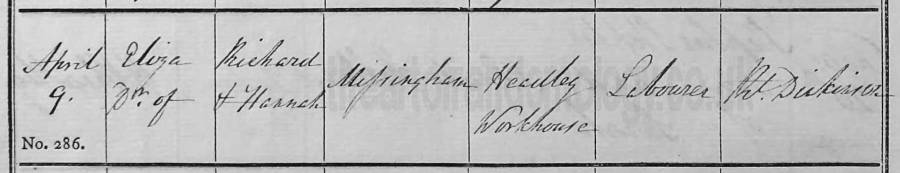 April 9. No. 286.
Eliza Dr. of
Richard & Hannah
Missingham
Headley Workhouse
Labourer
Rt. Dickinson